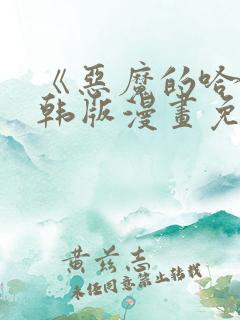 《恶魔的哈
韩版漫画免
黄兹志
未经同意禁止转载